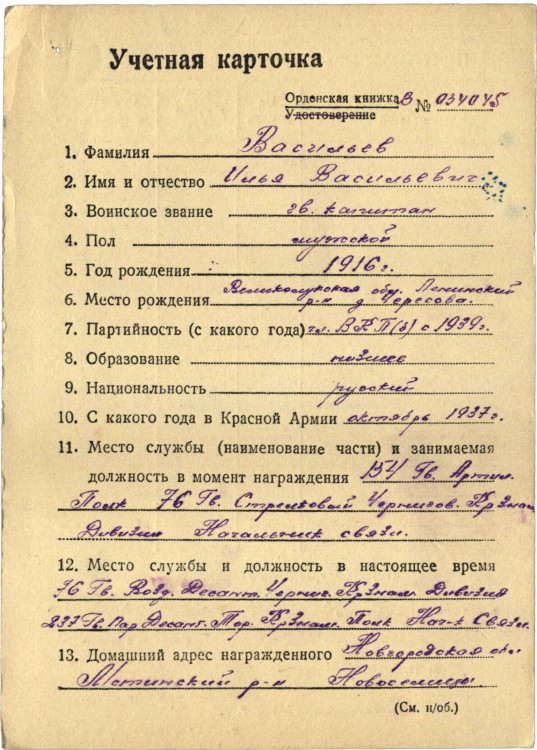 Учетная карточка
Орденская книжка В № 034045
Удостоверение
1. Фамилия Васильев
2. Имя и отчество Илья Васильевич
3. Воинское звание гв. капитан
4. Пол мужской
5. Год рождения 1916 г.
Великолукская обл. Ленинский
6. Место рождения р-н д Чересова.
7. Партийность (с какого года) чл. ВКП(б) с 1939 г.
8. Образование низшее
9. Национальность русский
10. С какого года в Красной Армии октябрь 1937 г.
11. Место службы (наименование части) и занимаемая
должность в момент награждения 154 Гв. Артил.
Полк 76 Гв. Стрелковый Чернигов. Кр Знам.
Дивизия Начальник связи.
12. Место службы и должность в настоящее время
76 Гв. Возд. Десант. Черниг. Кр Знам. Дивизия
237 Гв. Пар Десант. Тор. Кр Знам. Полк Нач-к Связи.
13. Домашний адрес награжденного Новгородская обл
Мстинский р-н Новоселицы
(См. н/об.)